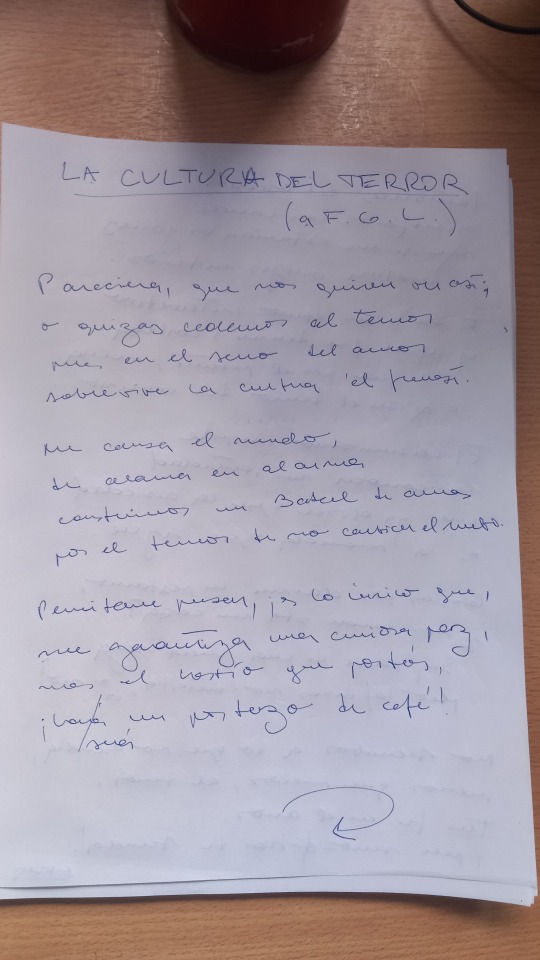 LA CULTURA DEL TERROR
(a F. G. L.)
Pareciera, que nos quieren así;
o quizas cedemos al temor
en el seno del amor
sobrevive la cultura el
Me causa el mundo,
de alarma en alarma
construimos un Babel de armas
por el temor de no cambiar el
Permitame pensar, ¡es lo único que,
me garantiza una curiosa paz,
mas el rostro que portás,
¡ será un portazo de café!